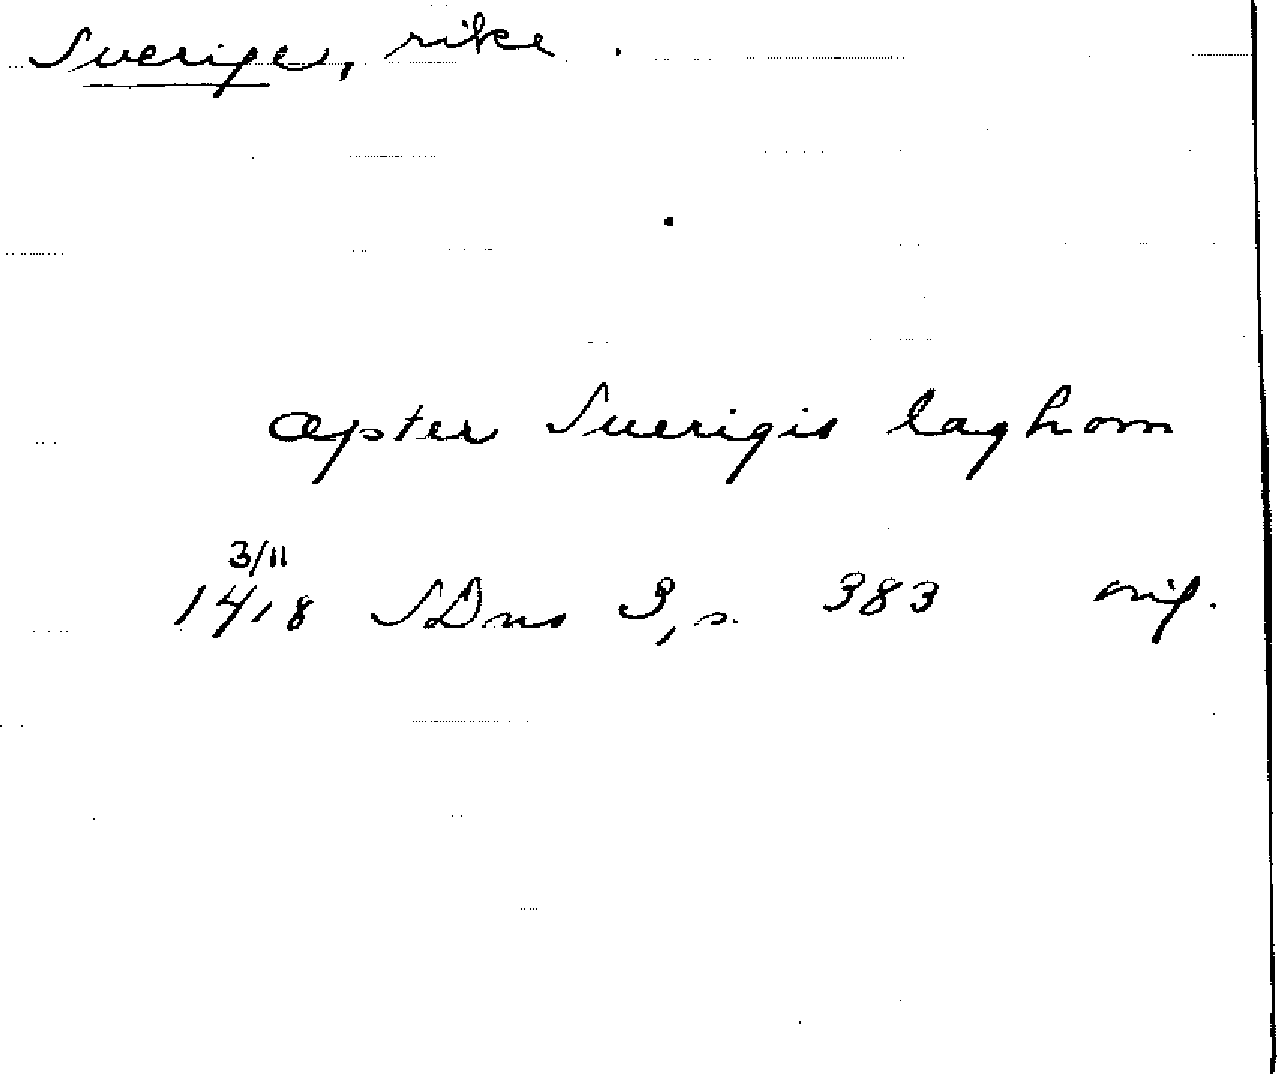 Sverige, rike.
æpter Suerigis laghom
3/11
1418 SDns 3, s. 383 orig.